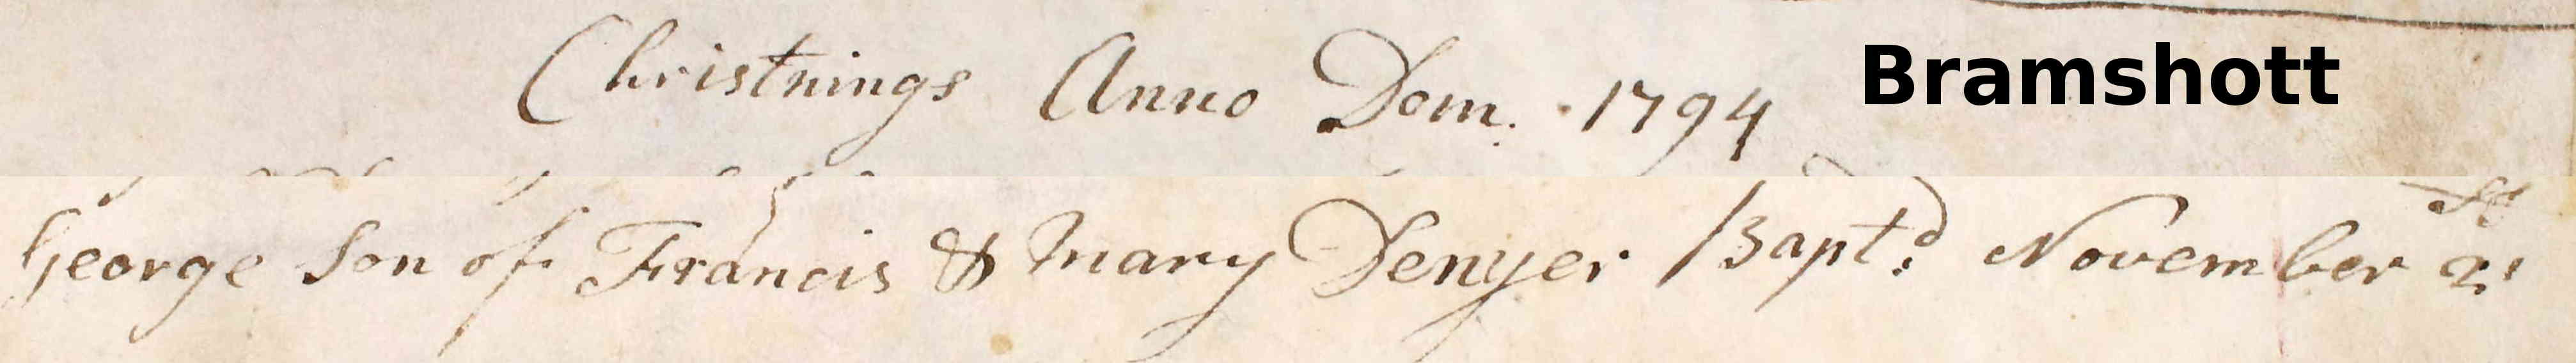 Christnings Anno Dom. 1794 Bramshott
George Son of Francis & Mary Denyer Bapt.d November 21